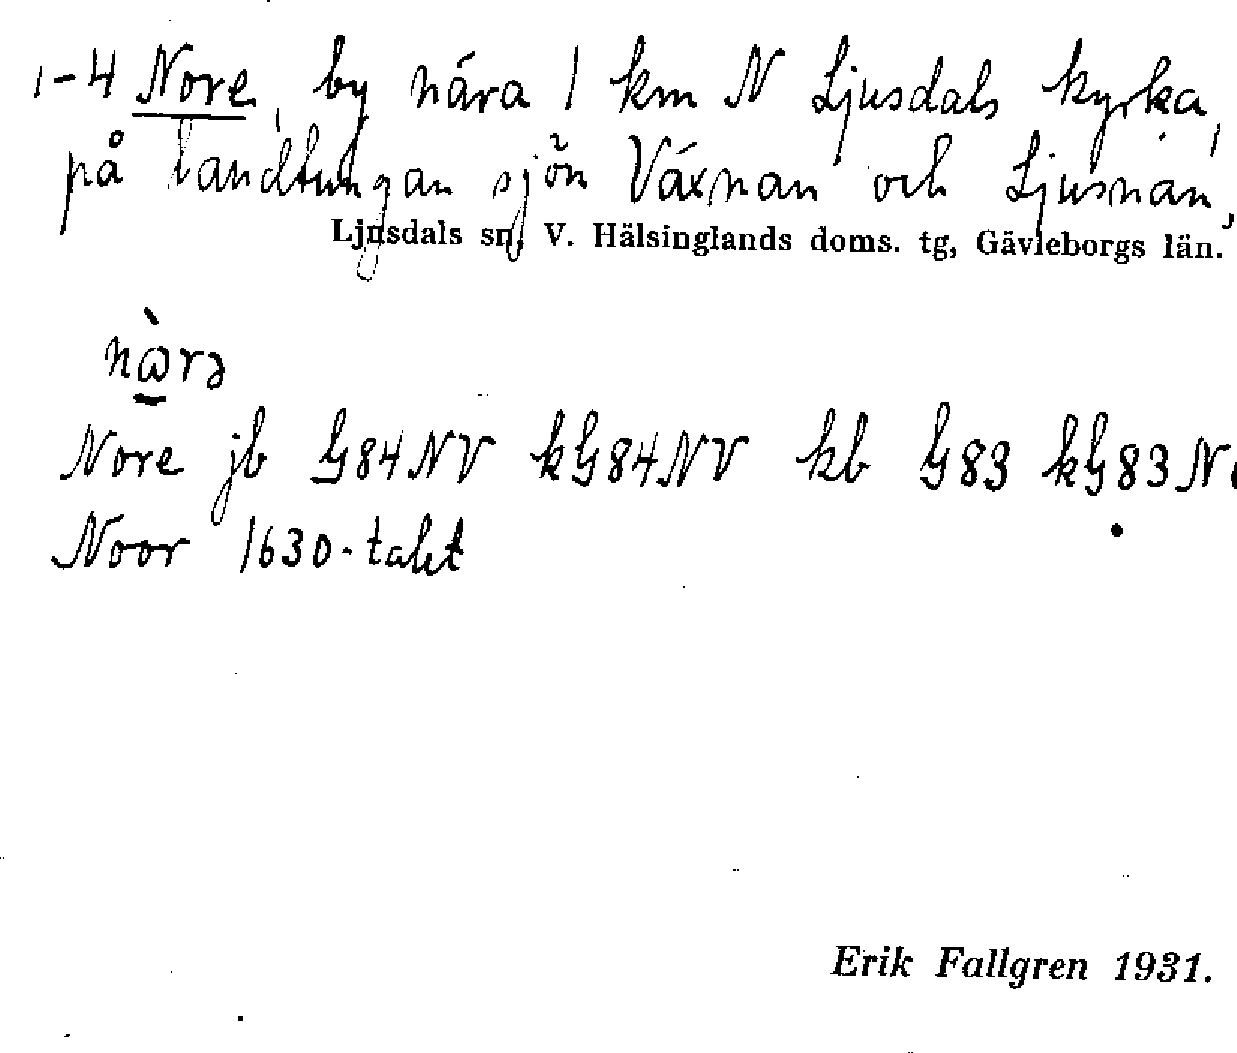 1-4 Nore, by nära 1 km N Ljusdals kyrka,
på landtungan sjön Växnan och Ljusnan,
Ljusdals sn, V. Hälsinglands doms. tg, Gävleborgs län.
Nore jb G84NV kG84NV kb G83 kG83N
Noor 1630-talet
Erik Fallgren 1931.